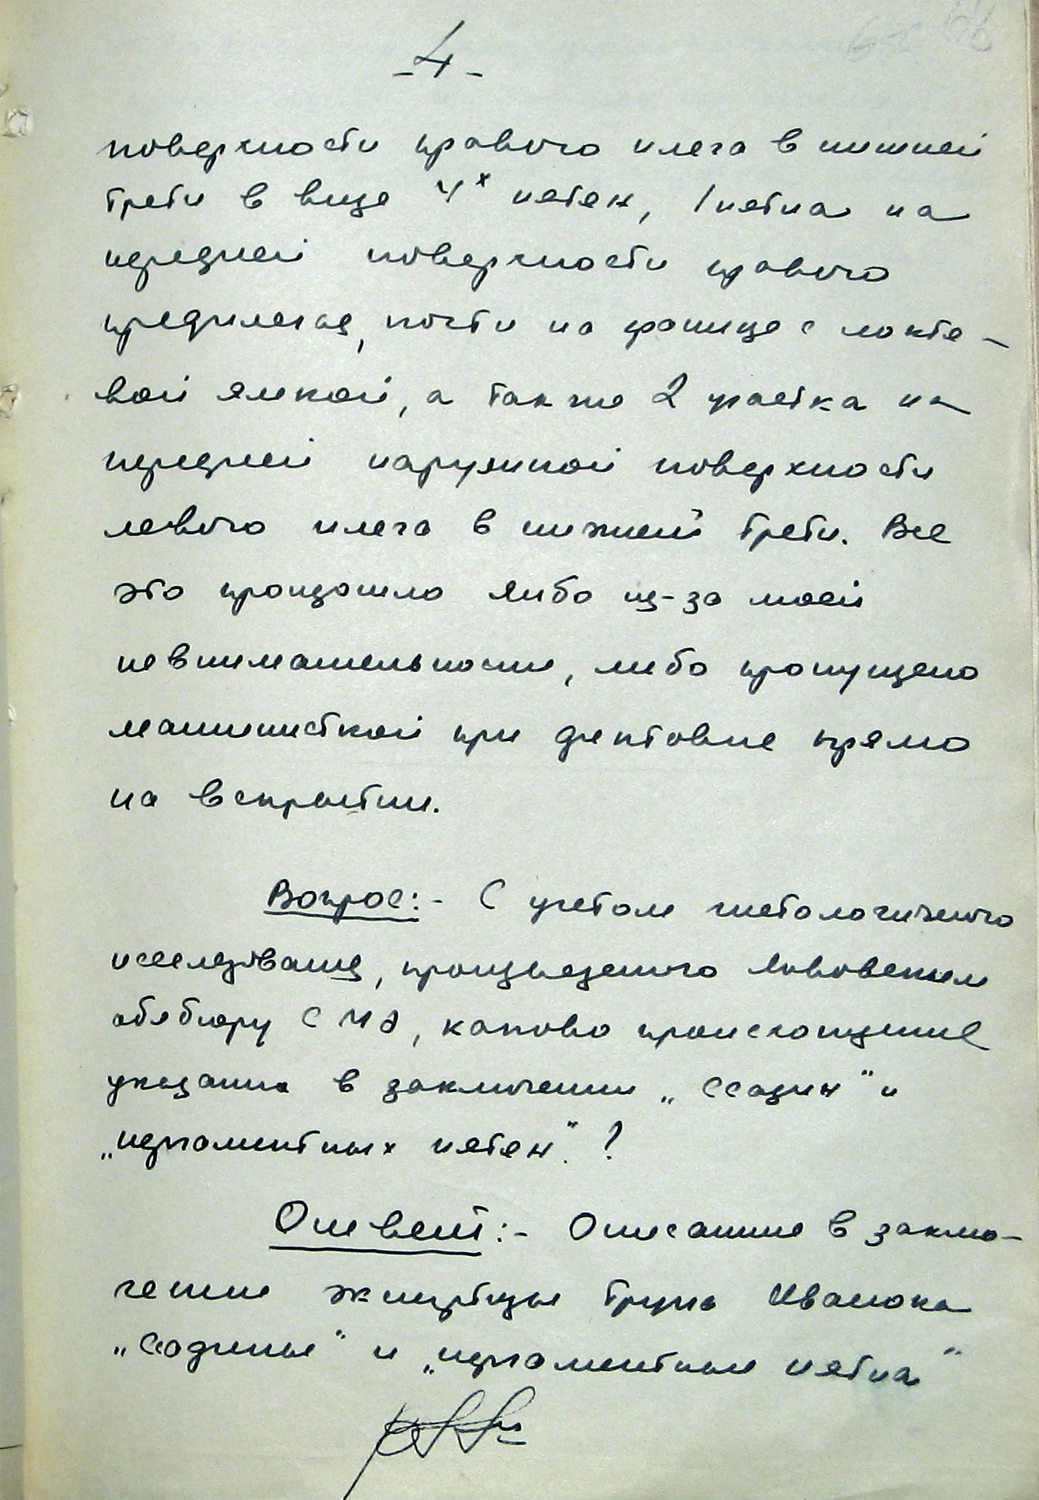 - 4 -
поверхности правого плеча в нижней
трети в виде 4х пятен, 1 пятна на
передней поверхности правого
предплечья, почти на границе с локте-
вой ямкой, а также 2 участка на
передней наружной поверхности
левого плеча в нижней трети. Все
это произошло либо из-за моей
невнимательности, либо пропущено
машинисткой при диктовке прямо
на вскрытии.
Вопрос:- С учетом гистологического
исследования, произведенного Львовским
облбюро СМЭ, каково происхождение
указанных в заключении „ссадин" и
„пергаментных пятен"?
Ответ:- Описанные в заклю-
чении экспертизы трупа Иванюка
„ссадины" и „пергаментные пятна"